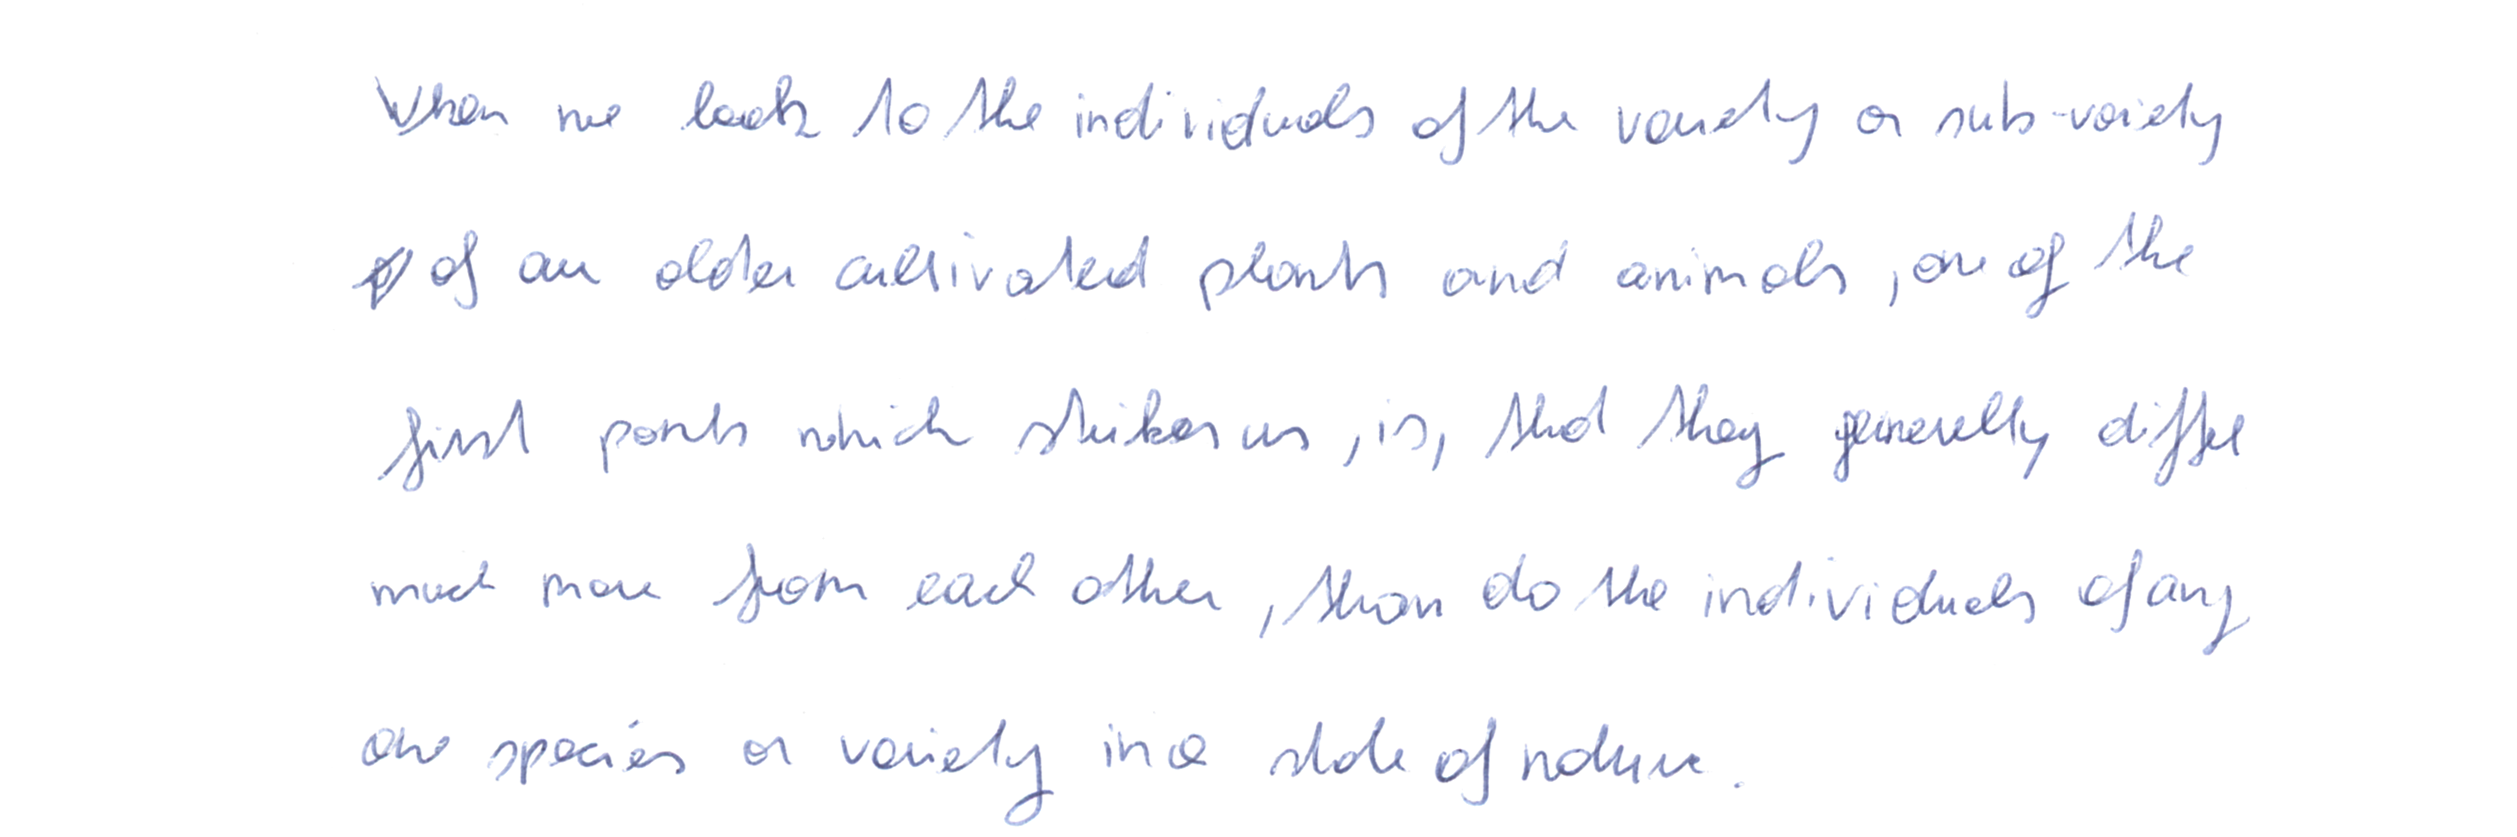 When we look to the individuals of the variety or sub-variety
of an older cultivated plants and animals, one of the
first points which strikes us, is, that they generally differ
much more from each other, than do the individuals of any
one species or variety in a state of nature.